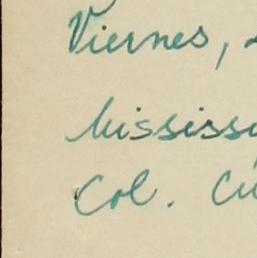 Viernes,
Mississi
Col. Cu